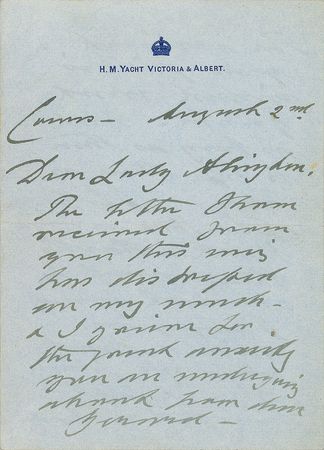 H. M. YACHT VICTORIA & ALBERT.
Cowes - August 2nd
Dear Lady Abingdon,
The letter I have
received from
you this mg
has distressed
me very much -
& I grieve for
the great anxiety
you are undergoing
about poor dear